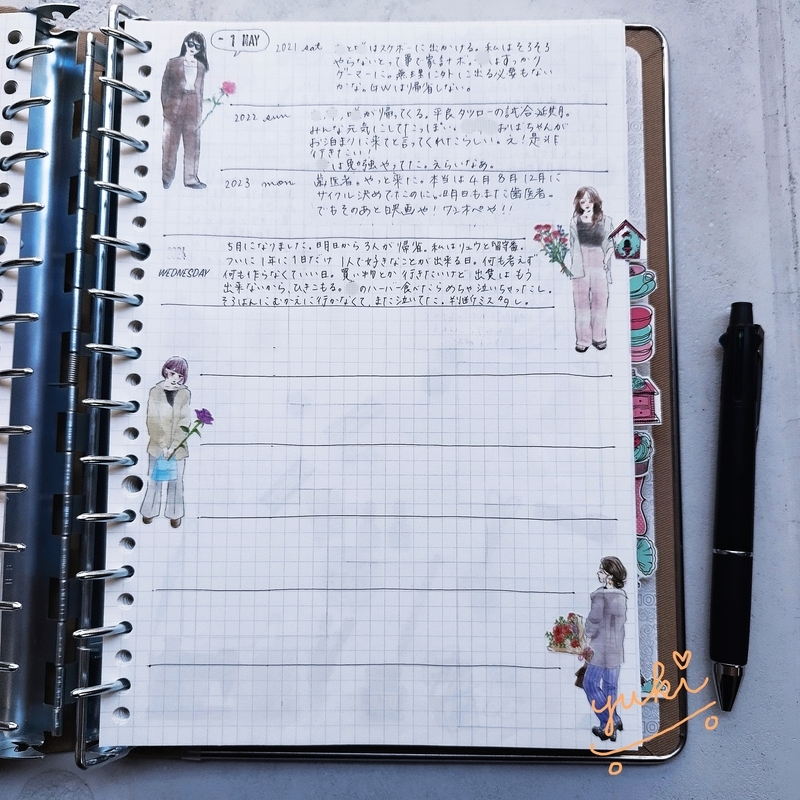 1 MAY 2021 sat はスケボーに出かける。私はそろそろ
やらないとって事で家計ボ。 はすっかり
ゲーマーに。無理に外に出る必要もない
かな。GWは帰省しない。
2022 sun が帰ってくる。平良タツローの試合延期。
みんな元気にしてたっぽい。 おばちゃんが
お泊まりに来てと言ってくれたらしい。え!是非
行きたい!
は勉強やってた。えらいなあ。
2023 mon 歯医者。やっと来た。本当は4月8日12月に
サイクル決めてたのに。明日もまた歯医者。
でもそのあと映画や!ワンオペや!!
5月になりました。明日から3人が帰省。私はリュウと留守番。
WEDNESDAY ついに1年に1日だけ1人で好きなことが出来る日。何も考えず
何も作らなくていい日。買い物とか行きたいけど出費はもう
出来ないから、ひきこもる。 のハーバー食べたらめちゃ泣いちゃったし。
そろばんにむかえに行かなくて、また泣いてた。判断ミスタレ。
yuki